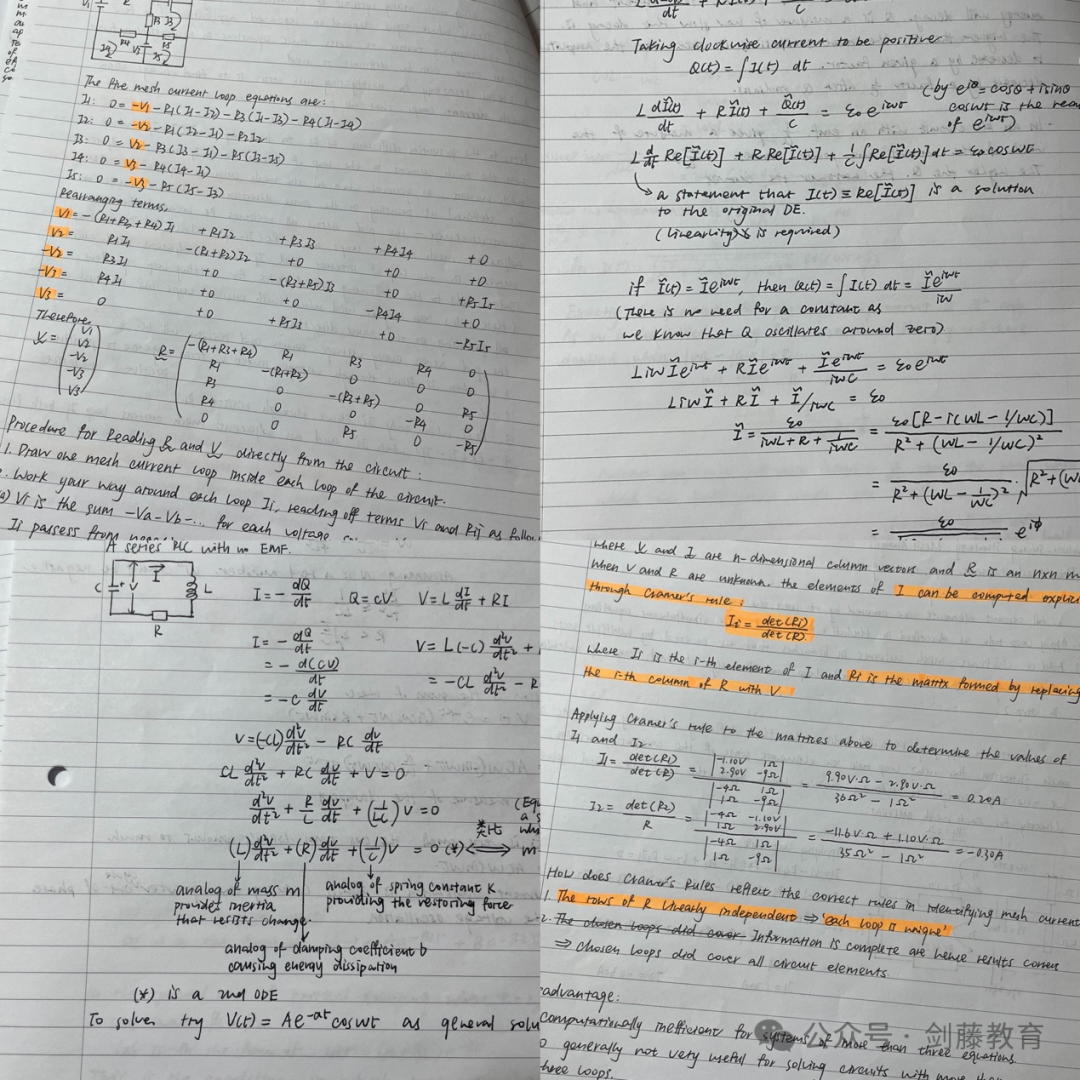 The five mesh current loop equations are:
I1: 0 = -V1 - R1(I1-I2) - R3(I1-I3) - R4(I1-I4)
I2: 0 = -V2 - R1(I2-I1) - R2I2
I3: 0 = V2 - R3(I3-I1) - R5(I3-I5)
I4: 0 = V3 - R4(I4-I1)
I5: 0 = -V3 - R5(I5-I3)
Rearranging terms,
V1 = -(R1+R3+R4)I1 + R1I2 + R3I3 + R4I4 + 0
V2 = R1I1 -(R1+R2)I2 +0 +0 +0
-V2 = R3I1 +0 -(R3+R5)I3 +0 +R5I5
-V3 = R4I1 +0 +0 -R4I4 +0
V3 = 0 +0 +R5I3 +0 -R5I5
Therefore
V = (V1 V2 -V2 -V3 V3)
R =
-(R1+R3+R4) R1 R3 R4 0
R1 -(R1+R2) 0 0 0
R3 0 -(R3+R5) 0 R5
R4 0 0 -R4 0
0 0 R5 0 -R5
Procedure for Reading R and V directly from the circuit:
1. Draw one mesh current loop inside each loop of the circuit.
. Work your way around each loop Ii, reading off terms Vi and Rij as follow
a) Vi is the sum -Va-Vb-... for each voltage
Ii passess from
Taking clockwise current to be positive
Q(t) = ∫I(t) dt.
L dĨ(t)/dt + RĨ(t) + Q̃(t)/C = ε0e^iwt
(by e^iθ = cosθ + isinθ
coswt is the rea
of e^iwt)
L d/dt Re[Ĩ(t)] + R Re[Ĩ(t)] + 1/C ∫Re[Ĩ(t)]dt = ε0 coswt
a statement that I(t) ≡ Re[Ĩ(t)] is a solution
to the original DE.
(linearity is required)
if Ĩ(t) = Ĩe^iwt, then Q(t) = ∫I(t) dt = Ĩe^iwt/iw
(There is no need for a constant as
we know that Q oscillates around zero)
LiwĨe^iwt + RĨe^iwt + Ĩe^iwt/iwC = ε0e^iwt
LiwĨ + RĨ + Ĩ/iwC = ε0
Ĩ = ε0/(iwL + R + 1/iwC) = ε0[R - i(wL - 1/wC)]/(R² + (wL - 1/wC)²)
= ε0/(R² + (wL - 1/wC)²) · √R² + (w
= ε0 e^iφ
A series RLC with no EMF.
C + V I L
R
I = - dQ/dt Q = CV V = L dI/dt + RI
I = - dQ/dt V = L(-C) d²V/dt² +
= - d(CV)/dt = -CL d²V/dt² - R
= -C dV/dt
V = (-CL) d²V/dt² - RC dV/dt
CL d²V/dt² + RC dV/dt + V = 0
d²V/dt² + R/L dV/dt + (1/LC) V = 0
(Equ
a s
whi
类比
(L) d²V/dt² + (R) dV/dt + (1/C) V = 0 (*) ⟺ m
analog of mass m
provides inertia
that resists change.
analog of spring constant K
providing the restoring force
analog of damping coefficient b
causing energy dissipation
(*) is a 2nd ODE
To solve, try V(t) = Ae^-at coswt as general solu
where V and I are n-dimensional column vectors and R is an nxn m
When V and R are unknown, the elements of I can be computed explici
through Cramer's rule:
Ii = det(Ri)/det(R)
where Ii is the i-th element of I and Ri is the matrix formed by replacing
the i-th column of R with V
Applying Cramer's rule to the matrices above to determine the values of
I1 and I2.
I1 = det(R1)/det(R) = |-1.10V 1Ω; 2.90V -9Ω| / |-4Ω 1Ω; 1Ω -9Ω| = (9.90V·Ω - 2.90V·Ω)/(36Ω² - 1Ω²) = 0.20A
I2 = det(R2)/R = |-4Ω -1.10V; 1Ω 2.90V| / |-4Ω 1Ω; 1Ω -9Ω| = (-11.6V·Ω + 1.10V·Ω)/(35Ω² - 1Ω²) = -0.30A
How does Cramer's Rules reflect the correct rules in identifying mesh current
1. The rows of R linearly independent ⇒ 'each loop is unique'
2. The chosen loops did cover Information is complete are hence results corre
⇒ chosen loops did cover all circuit elements
advantage:
computationally inefficient for systems of more than three equations
o generally not very useful for solving circuits with more than
three loops.
公众号 · 剑藤教育